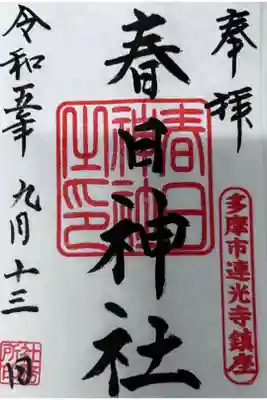 奉拝
多摩市連光寺鎮座
春日神社
春日神社之印
令和五年九月十三日
社務所印